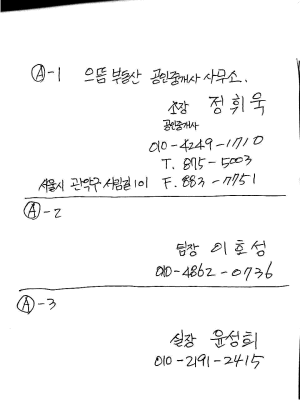 Ⓐ-1 으뜸 부동산 공인중개사 사무소.
소장 정휘욱
공인중개사
010-4249-1710
T. 875-5003
서울시 관악구 서림길 101 F. 883-7751
Ⓐ-2
팀장 이호성
010-4862-0736
Ⓐ-3
실장 윤성희
010-2191-2415